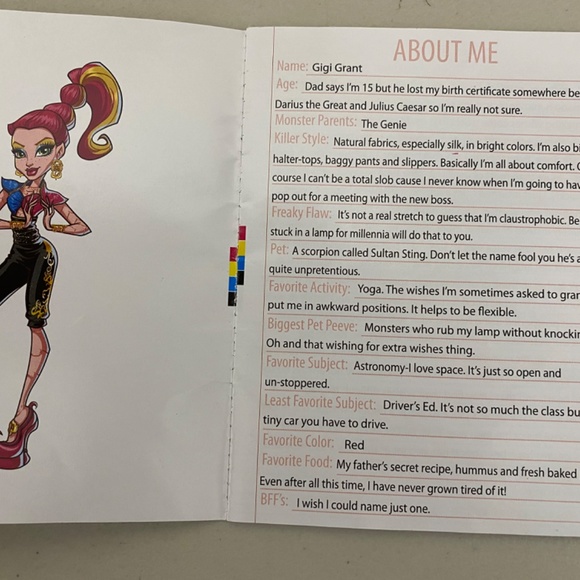 ABOUT ME
Name: Gigi Grant
Age: Dad says I'm 15 but he lost my birth certificate somewhere be
Darius the Great and Julius Caesar so I'm really not sure.
Monster Parents: The Genie
Killer Style: Natural fabrics, especially silk, in bright colors. I'm also bi
halter-tops, baggy pants and slippers. Basically I'm all about comfort. O
course I can't be a total slob cause I never know when I'm going to hav
pop out for a meeting with the new boss.
Freaky Flaw: It's not a real stretch to guess that I'm claustrophobic. Be
stuck in a lamp for millennia will do that to you.
Pet: A scorpion called Sultan Sting. Don't let the name fool you he's a
quite unpretentious.
Favorite Activity: Yoga. The wishes I'm sometimes asked to gran
put me in awkward positions. It helps to be flexible.
Biggest Pet Peeve: Monsters who rub my lamp without knockin
Oh and that wishing for extra wishes thing.
Favorite Subject: Astronomy-I love space. It's just so open and
un-stoppered.
Least Favorite Subject: Driver's Ed. It's not so much the class bu
tiny car you have to drive.
Favorite Color: Red
Favorite Food: My father's secret recipe, hummus and fresh baked
Even after all this time, I have never grown tired of it!
BFF's: I wish I could name just one.